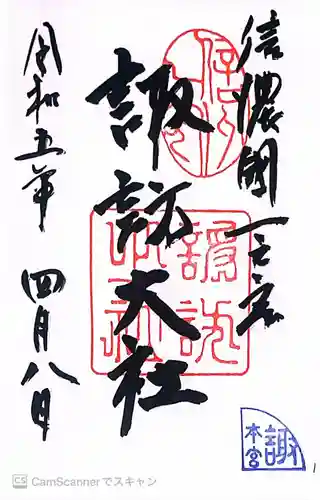 信濃國一之宮
諏訪大社
令和五年 四月八日
諏訪大社
諏
本宮
CS CamScannerでスキャン